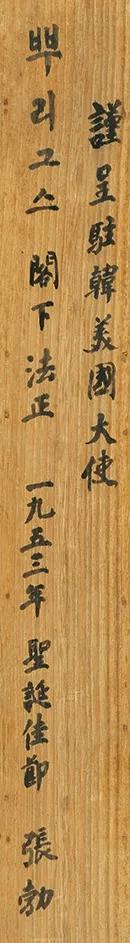 謹呈駐韓美國大使
뿌리그스 閣下 法正 一九五三年 聖誕佳節 張勃